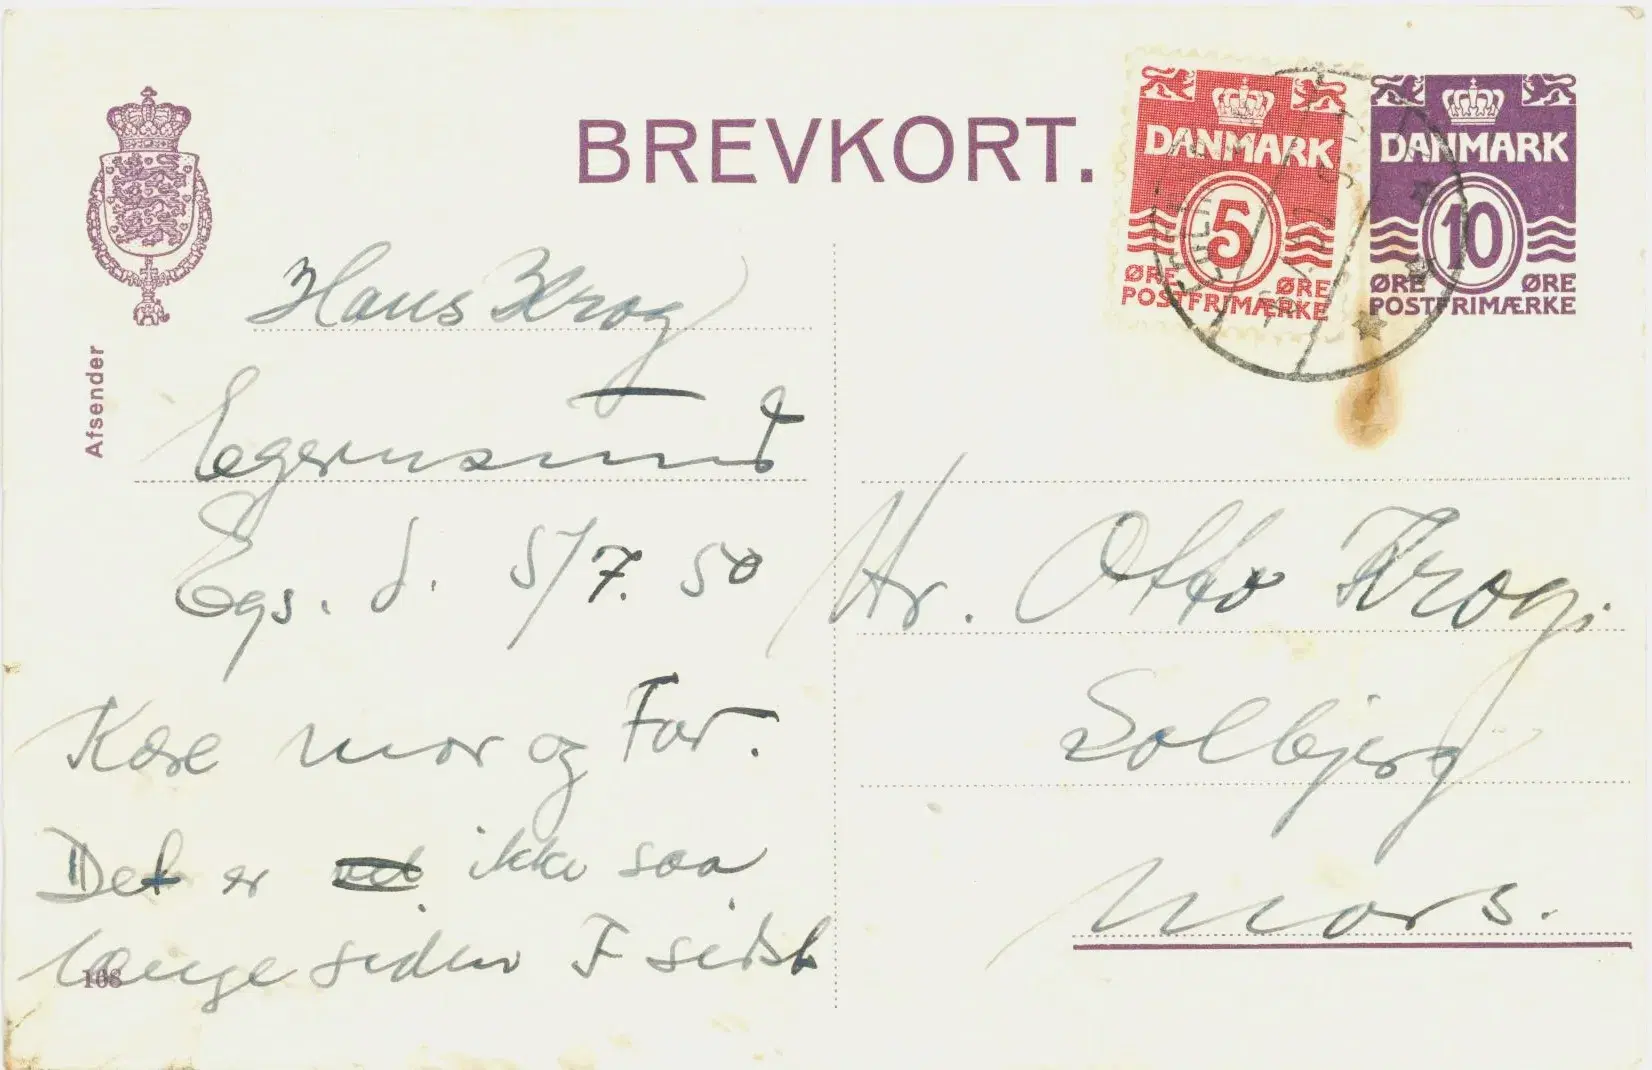 BREVKORT.
DANMARK
5
ØRE ØRE
POSTFRIMÆRKE
DANMARK
10
ØRE ØRE
POSTFRIMÆRKE
Afsender
Hans Krog
Egernsund
Egs. d. 5/7. 50
Kære mor og Far.
Det er ikke saa
længe siden I sidst
108
Hr. Otto Krog.
Solbjerg
Mors.